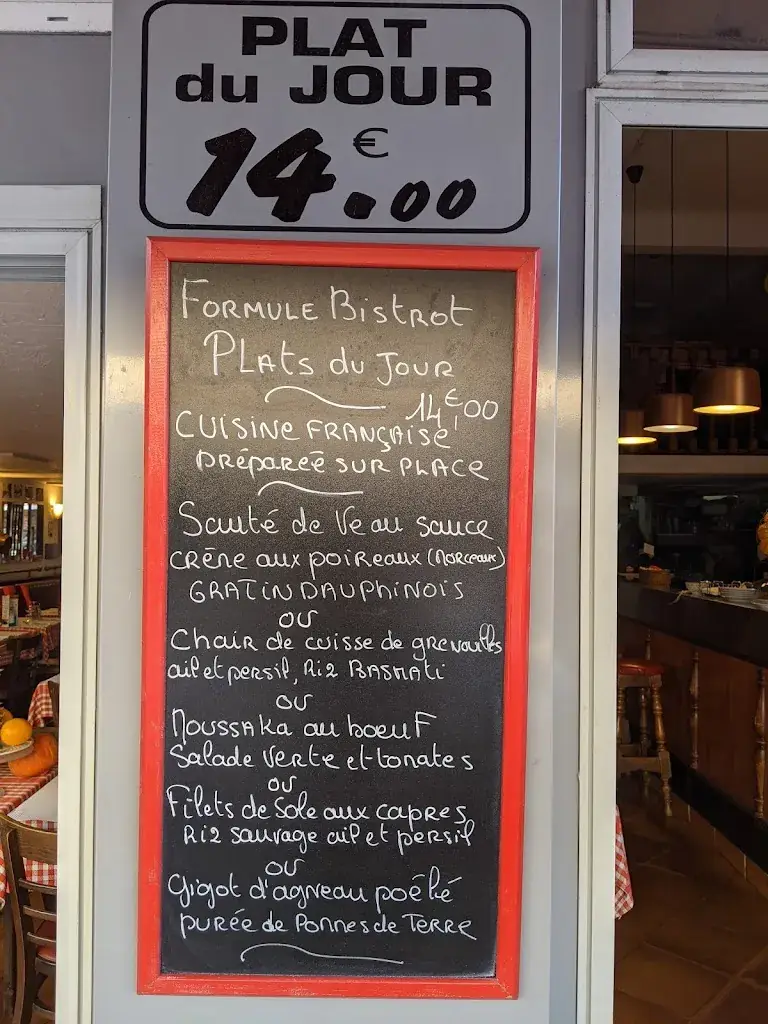 PLAT
du JOUR
14.00 €
FORMULE BISTROT
PLATS du JOUR
14€00
CUISINE FRANÇAISE
PRÉPAREÉ SUR PLACE
Sauté de Veau sauce
CRÈME AUX POIREAUX (MORCEAUX)
GRATIN DAUPHINOIS
OU
Chair de cuisse de grenouilles
ail et persil, RIZ BASMATI
OU
MOUSSAKA au boeuf
Salade Verte et tomates
OU
Filets de Sole aux capres
RIZ sauvage ail et persil
OU
Gigot d'agneau poélé
purée de Pommes de TERRE